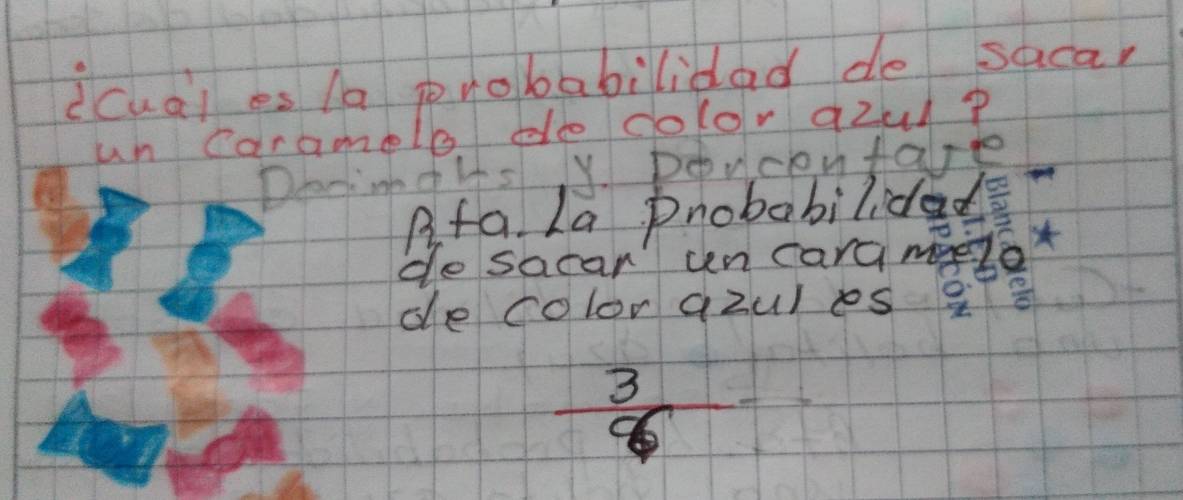 ¿Cuál es la probabilidad de sacar
un caramelo de color azul?
y. Porcentaje
Rta. La Probabilidad
de sacar un caramelo
de color azul es
3